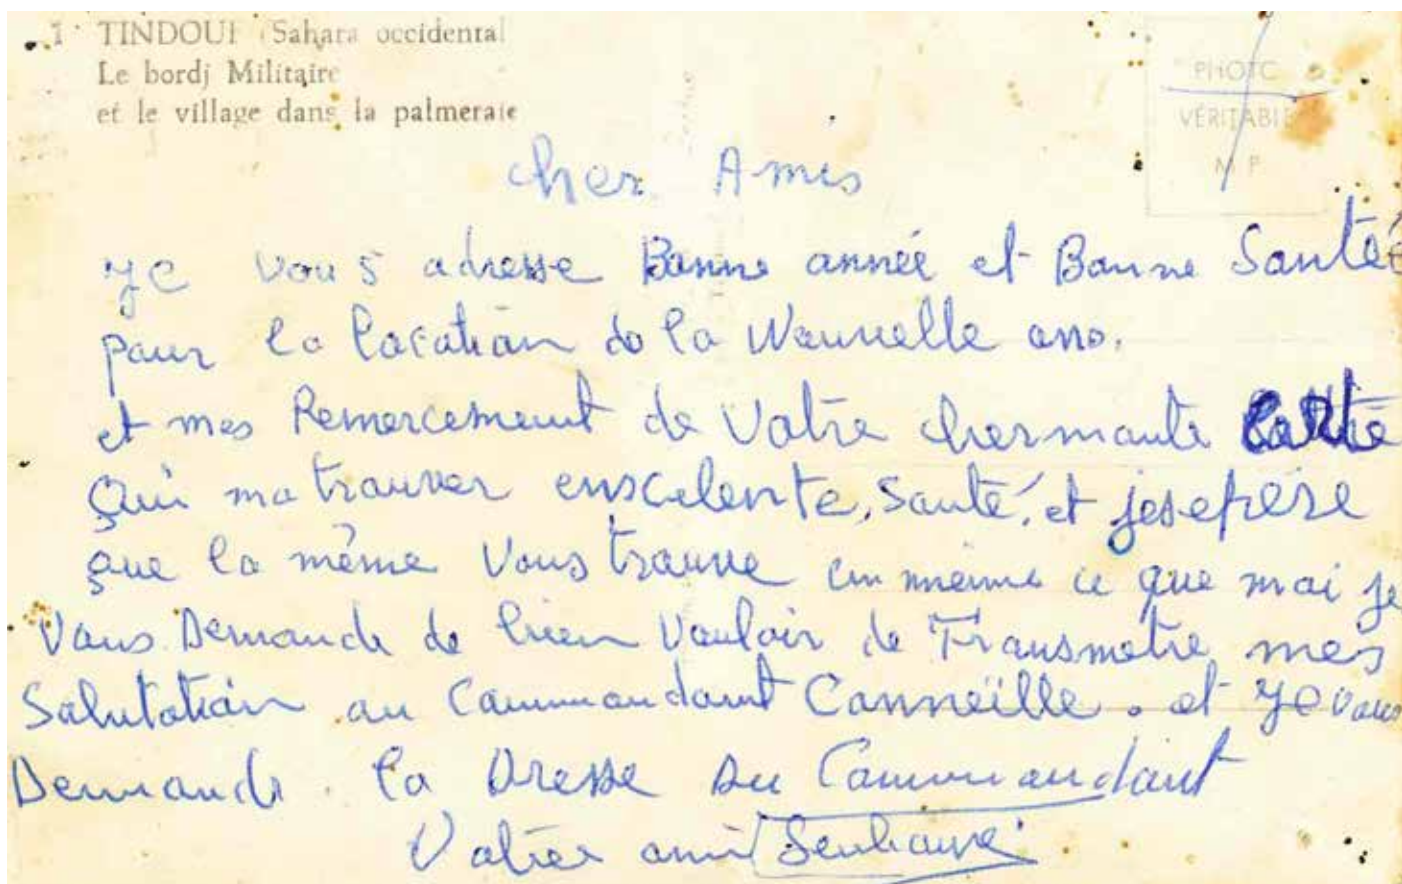 1 TINDOUF Sahara occidental
Le bordj Militaire
et le village dans la palmeraie
PHOTO
VÉRITABLE
M P
cher Amis
Je vous adresse Bonne année et Bonne Santé
pour la location de la Nouvelle ans.
et mes Remercement de Votre chermante
Qui ma trouver enscelente, Santé, et jesepère
que la même Vous trouve ce que moi je
Vous Demande de bien Vouloir de Transmetre mes
Salutation au Commandant Connëille. et Je vous
Demande la Dresse Du Commandant
Votre ami